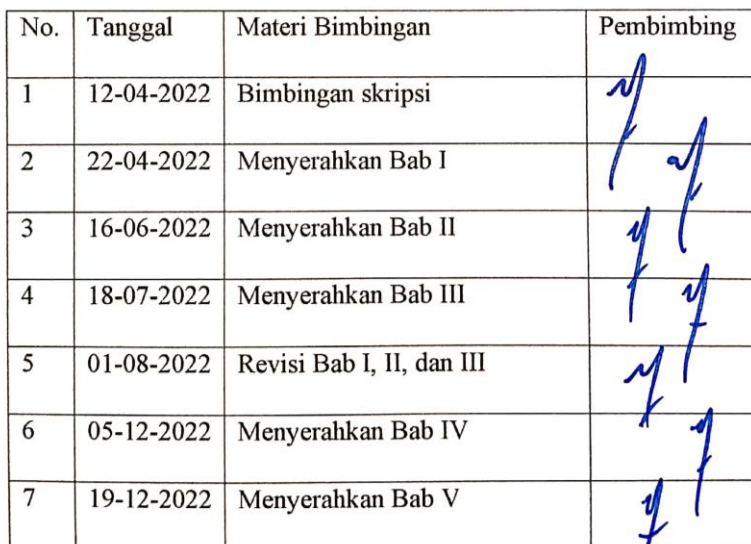 No. Tanggal Materi Bimbingan Pembimbing
1 12-04-2022 Bimbingan skripsi
2 22-04-2022 Menyerahkan Bab I
3 16-06-2022 Menyerahkan Bab II
4 18-07-2022 Menyerahkan Bab III
5 01-08-2022 Revisi Bab I, II, dan III
6 05-12-2022 Menyerahkan Bab IV
7 19-12-2022 Menyerahkan Bab V